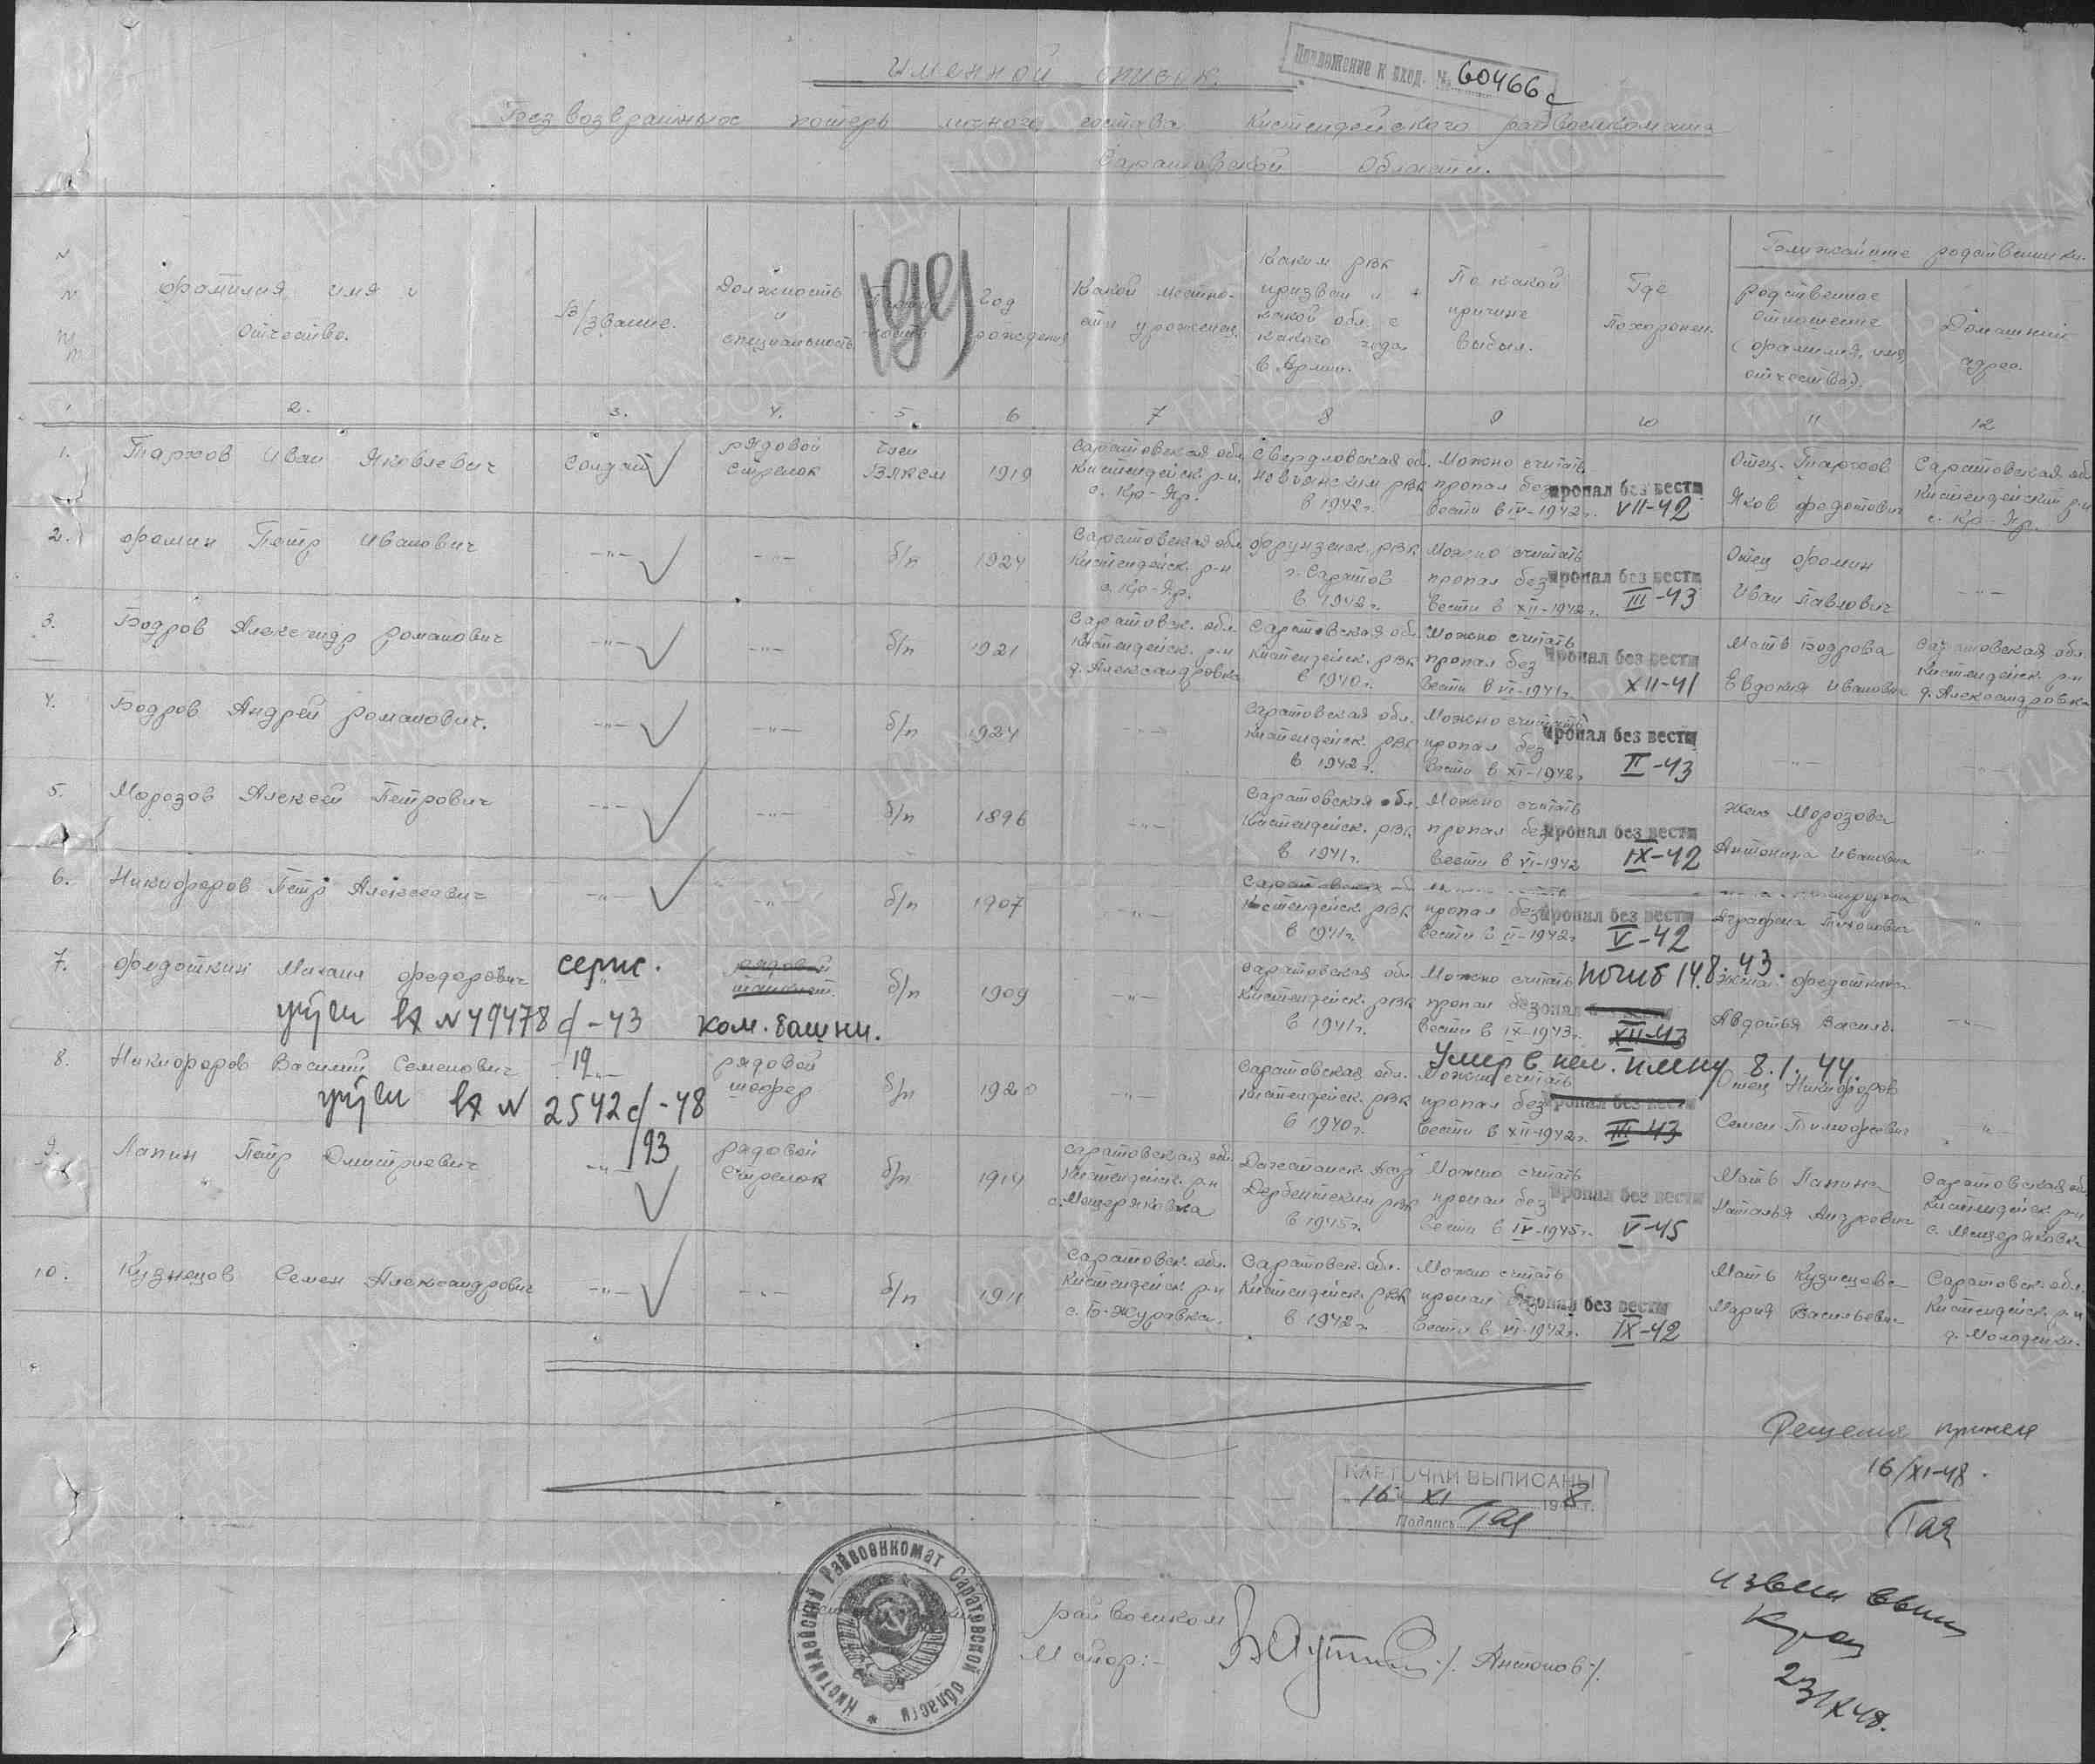 Именной список
Приложение к вход. № 60466с
Безвозвратных потерь личного состава Кистендейского райвоенкомата
Саратовской Области.
N N п/п
Фамилия, имя и отчество.
В/звание.
Должность и специальность
Год рождения
Какой местности уроженец.
Каким РВК призван и какой обл. с какого года в Армии.
По какой причине выбыл.
Где похоронен.
Ближайшие родственники
Родственное отношение (фамилия, имя, отчество).
Домашний адрес.
1 2. 3. 4. 5. 6 7 8 9 10 11 12
1. Тархов Иван Яковлевич солдат рядовой стрелок член ВЛКСМ 1919 Саратовская обл. Кистендейск. р-н. с. Кр-Яр. Свердловская об. Невьянским РВК в 1942 г. Можно считать пропал без вести в IV-1942 г. пропал без вести VII-42 Отец-Тархов Яков Федотович Саратовская обл Кистендейский р-н с. Кр-Яр.
2. Фомин Петр Иванович -"- -"- б/п 1924 Саратовская обл. Кистендейск. р-н с. Кр-Яр. Фрунзенск. РВК г. Саратов в 1942 г. Можно считать пропал без вести в XII-1942 г. пропал без вести III-43 Отец Фомин Иван Павлович -"-
3. Бодров Александр Романович -"- -"- б/п 1921 Саратовск. обл. Кистендейск. р-н д. Александровка Саратовская обл. Кистендейск. РВК в 1940 г. Можно считать пропал без вести в VI-1941 г. пропал без вести XII-41 Мать Бодрова Евдокия Ивановн Саратовская обл. Кистендейск. р-н д. Александровка
4. Бодров Андрей Романович. -"- -"- б/п 1924 -"- Саратовская обл. Кистендейск. РВК в 1942 г. Можно считать пропал без вести в XI-1942 г. пропал без вести II-43 -"- -"-
5. Морозов Алексей Петрович -"- -"- б/п 1896 -"- Саратовская обл. Кистендейск. РВК в 1941 г. Можно считать пропал без вести в VI-1942 пропал без вести IX-42 Жена Морозова Антонина Ивановна -"-
6. Никифоров Петр Алексеевич -"- -"- б/п 1907 -"- Саратовская об Кистендейск. РВК в 1941 г. пропал без вести в II-1942 г. пропал без вести V-42 Аграфена Тихоновн -"-
7. Федоткин Михаил Федорович серж. рядовой танкист. б/п 1909 -"- Саратовская обл. Кистендейск. РВК в 1941 г. Можно считать пропал без вести в IX-1943 г. погиб 14.8.43. XII-43 Жена Федоткина Авдотья Василь. -"-
учтен вх N 49478с-43 ком. башни.
8. Никифоров Василий Семенович -"- рядовой шофер б/п 1920 -"- Саратовская обл. Кистендейск. РВК в 1940 г. Можно считать пропал без вести в XII-1942 г. Умер в нем. плену 8.1.44. пропал без вести III-43 Отец Никифоров Семен Тимофеевич -"-
учтен вх N 2542с-48
9. Лапин Петр Дмитриевич -"- рядовой стрелок б/п 1914 Саратовская обл. Кистендейск. р-н с. Мещеряковка Дагестанск. Дербентским РВК в 1945 г. Можно считать пропал без вести в IV-1945 г. пропал без вести V-45 Мать Лапина Наталья Андреевн Саратовская об. Кистендейск. р-н с. Мещеряковка
10. Кузнецов Семен Александрович -"- -"- б/п 1911 Саратовск. обл. Кистендейск. р-н с. Б-Журавка. Саратовск. обл. Кистендейск. РВК в 1942 г. Можно считать пропал вести в VI-1942 г. пропал без вести IX-42 Мать Кузнецова Мария Васильевн Саратовск. обл. Кистендейск. р-н
Решение принял
16/XI-48.
КАРТОЧКИ ВЫПИСАНЫ
16 XI 1948 г.
Подпись
Кистендейский Райвоенкомат Саратовской области
Райвоенком
Майор:- /.Антонов/.